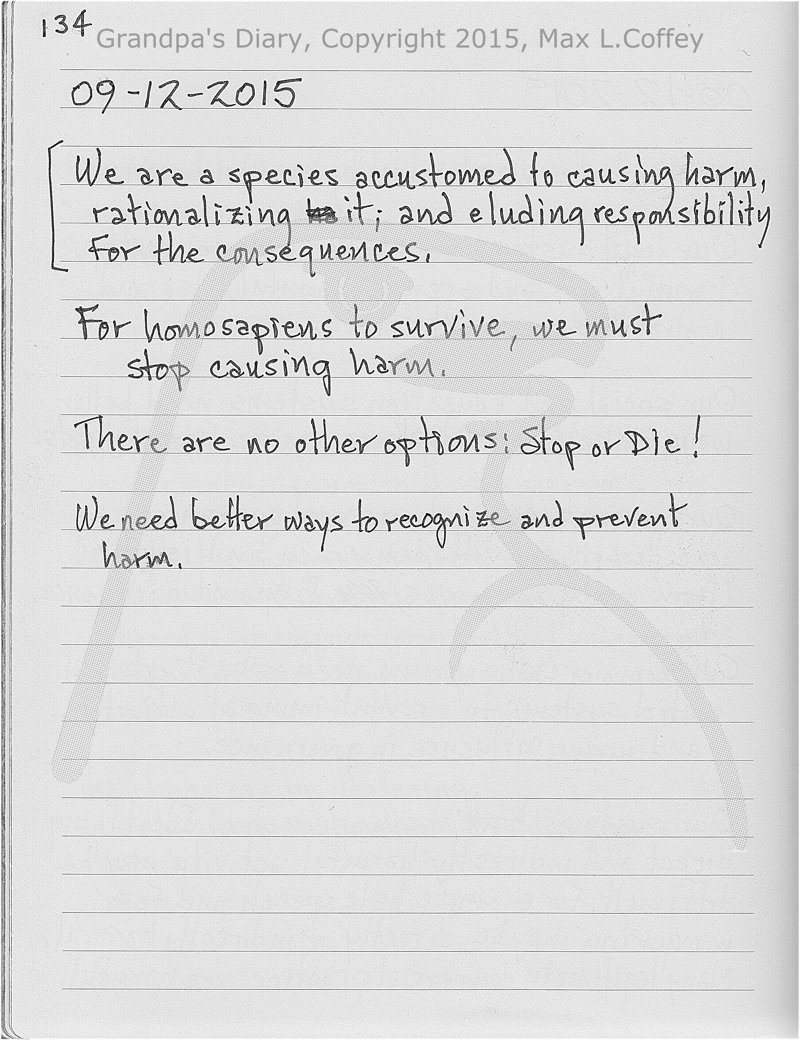 134
Grandpa's Diary, Copyright 2015, Max L.Coffey
09-12-2015
We are a species accustomed to causing harm,
rationalizing it; and eluding responsibility
for the consequences.
For homosapiens to survive, we must
stop causing harm.
There are no other options: Stop or Die!
We need better ways to recognize and prevent
harm.